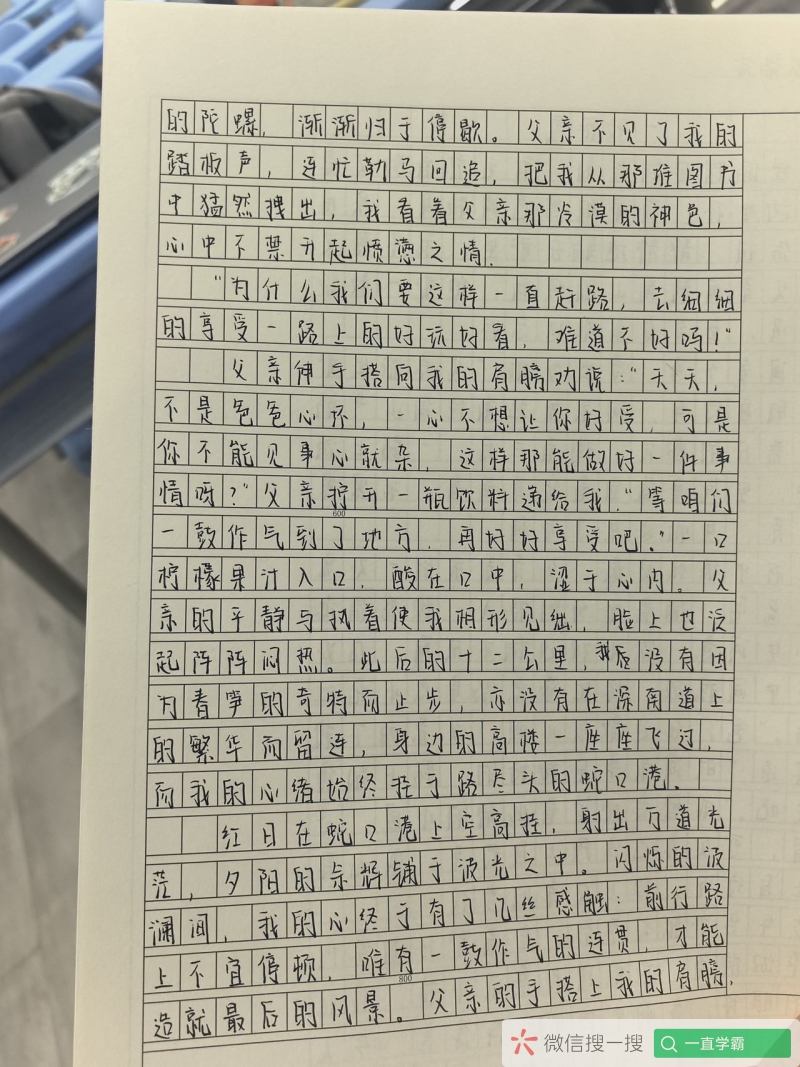 的陀螺，渐渐归于停歇。父亲不见了我的
踏板声，连忙勒马回追，把我从那堆图书
中猛然拽出，我看着父亲那冷漠的神色，
心中不禁升起愤懑之情.
“为什么我们要这样一直赶路，去细细
的享受一路上的好玩好看，难道不好吗！”
父亲伸手搭向我的肩膀劝说：“天天，
不是爸爸心坏，一心不想让你好受，可是
你不能见事心就杂，这样那能做好一件事
情呀？”父亲拧开一瓶饮料递给我.“等咱们
600
一鼓作气到了地方，再好好享受吧.”一口
柠檬果汁入口，酸在口中，涩于心内。父
亲的平静与执着使我相形见绌，脸上也泛
起阵阵闷热。此后的十二公里，我后没有因
为春笋的奇特而止步，亦没有在深南道上
的繁华而留连，身边的高楼一座座飞过，
而我的心绪始终挂于路尽头的蛇口港.
红日在蛇口港上空高挂，射出万道光
茫，夕阳的余辉铺于波光之中。闪烁的波
澜间，我的心终于有了几丝感触：前行路
上不宜停顿，唯有一鼓作气的连贯，才能
800
造就最后的风景。父亲的手搭上我的肩膀，
微信搜一搜 一直学霸